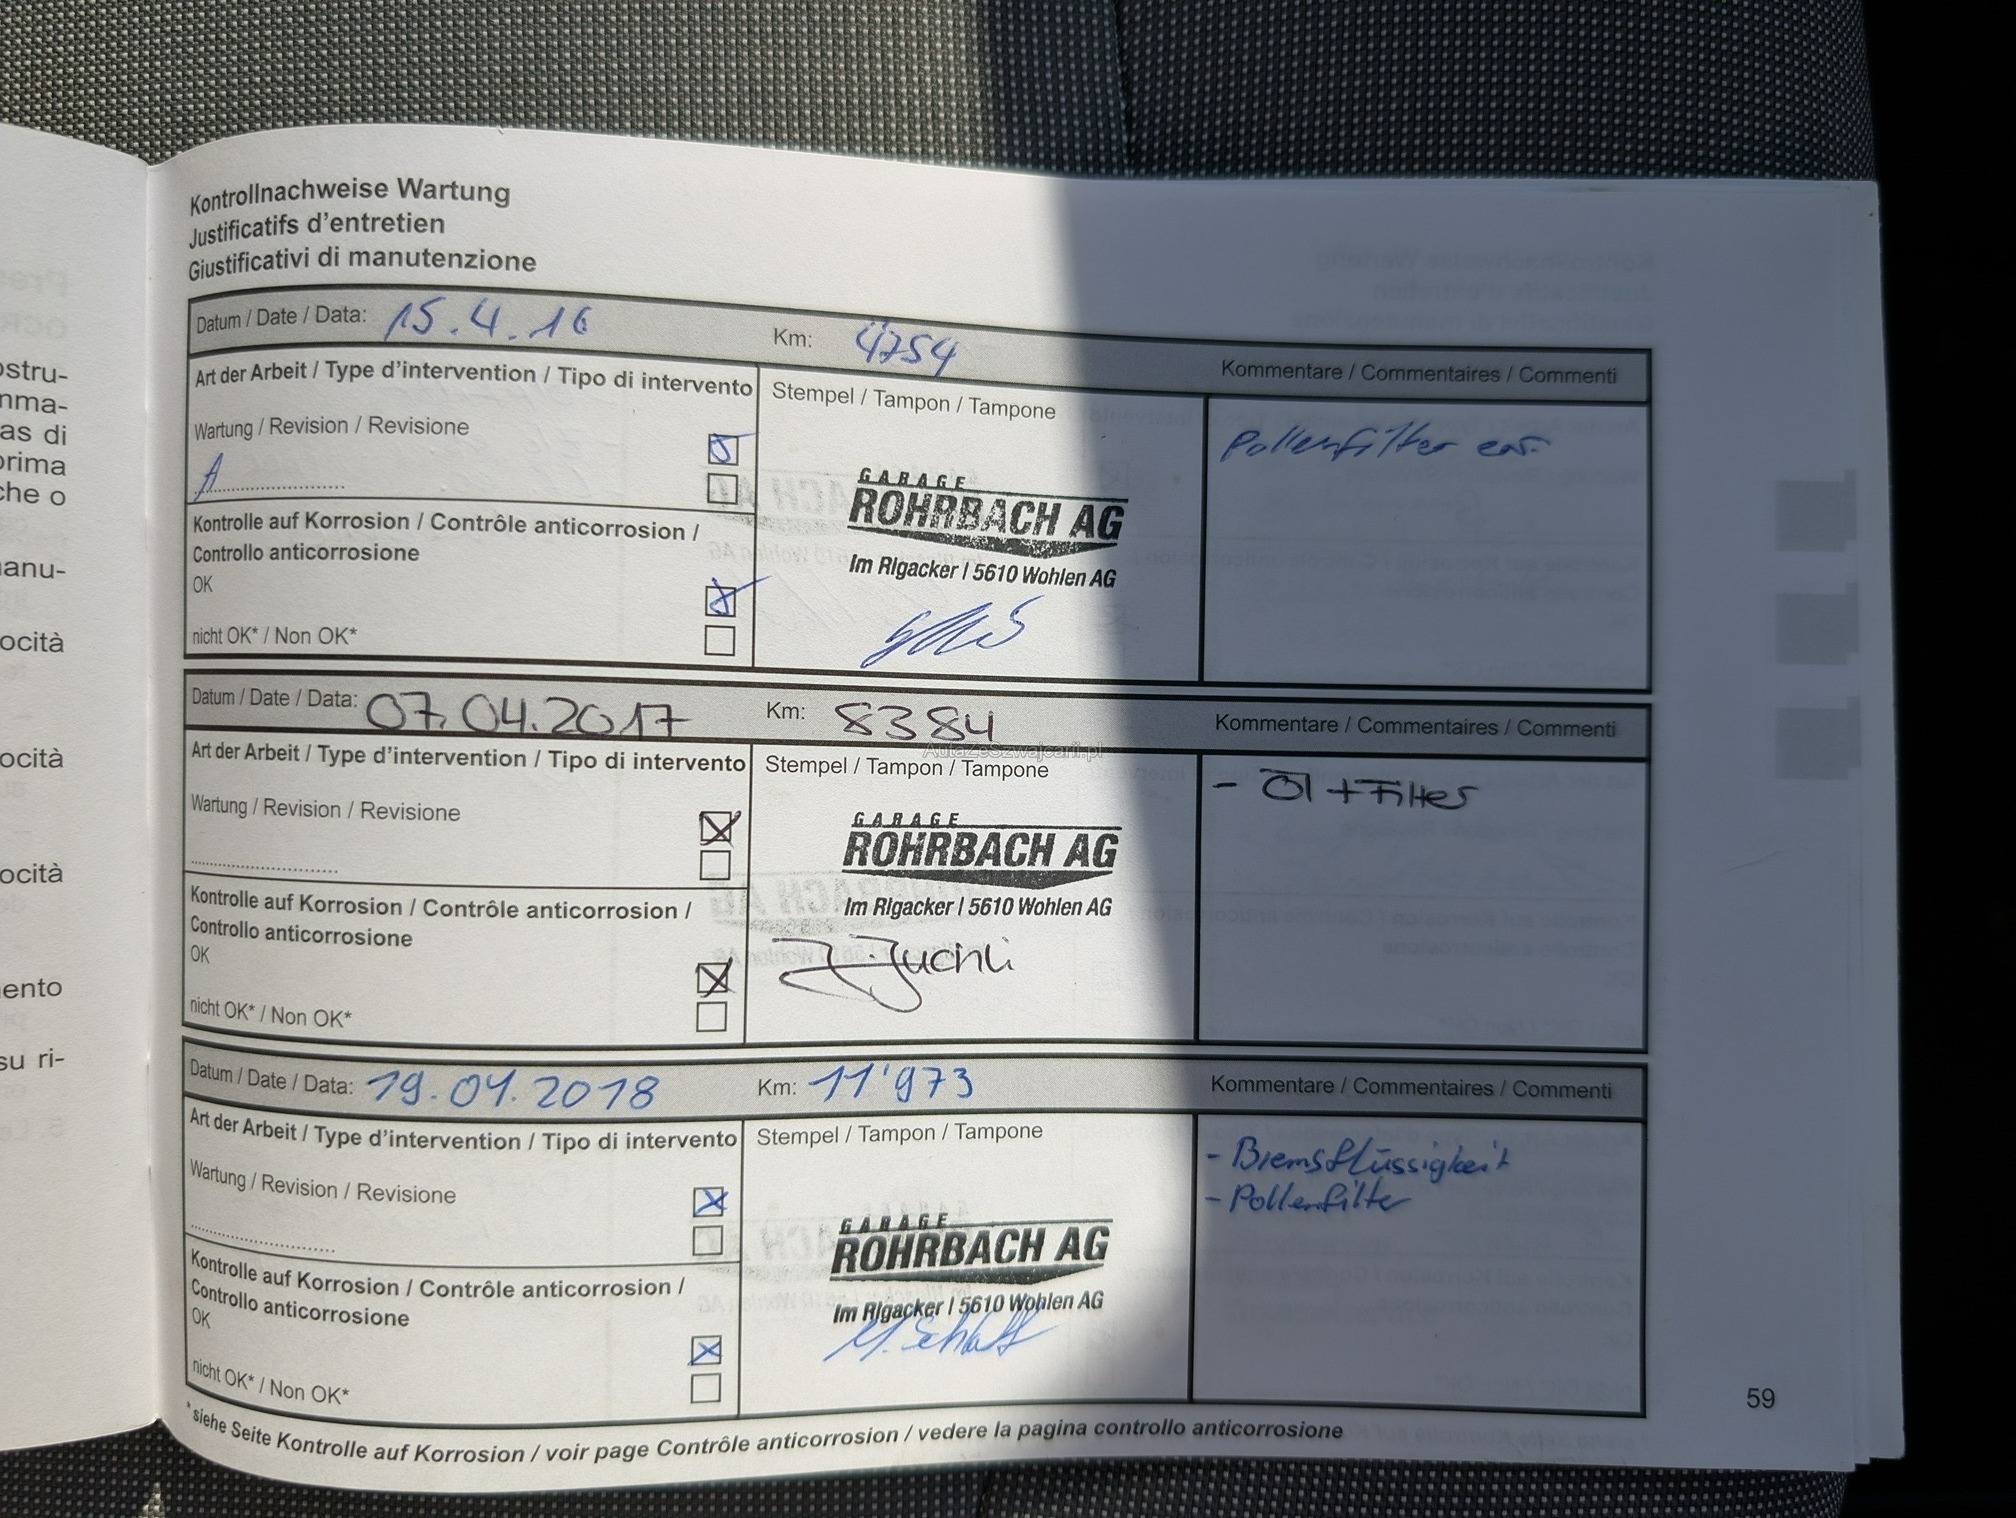 Kontrollnachweise Wartung
Justificatifs d'entretien
Giustificativi di manutenzione
Datum / Date / Data: 15.4.16 Km: 4'754 Kommentare / Commentaires / Commenti
Art der Arbeit / Type d'intervention / Tipo di intervento
Stempel / Tampon / Tampone
Wartung / Revision / Revisione
A
Pollenfilter
Kontrolle auf Korrosion / Contrôle anticorrosion /
Controllo anticorrosione
OK
nicht OK* / Non OK*
GARAGE
ROHRBACH AG
Im Rigacker | 5610 Wohlen AG
Datum / Date / Data: 07.04.2017 Km: 8384 Kommentare / Commentaires / Commenti
AutaZeSzwajcarii.pl
Art der Arbeit / Type d'intervention / Tipo di intervento
Stempel / Tampon / Tampone
Wartung / Revision / Revisione
- Öl + Filter
Kontrolle auf Korrosion / Contrôle anticorrosion /
Controllo anticorrosione
OK
nicht OK* / Non OK*
GARAGE
ROHRBACH AG
Im Rigacker | 5610 Wohlen AG
Datum / Date / Data: 19.04.2018 Km: 11'973 Kommentare / Commentaires / Commenti
Art der Arbeit / Type d'intervention / Tipo di intervento
Stempel / Tampon / Tampone
Wartung / Revision / Revisione
- Bremsflüssigkeit
- Pollenfilter
Kontrolle auf Korrosion / Contrôle anticorrosion /
Controllo anticorrosione
OK
nicht OK* / Non OK*
GARAGE
ROHRBACH AG
Im Rigacker | 5610 Wohlen AG
* siehe Seite Kontrolle auf Korrosion / voir page Contrôle anticorrosion / vedere la pagina controllo anticorrosione
59
ostru-
mma-
as di
prima
che o
manu-
ocità
ocità
ocità
mento
su ri-